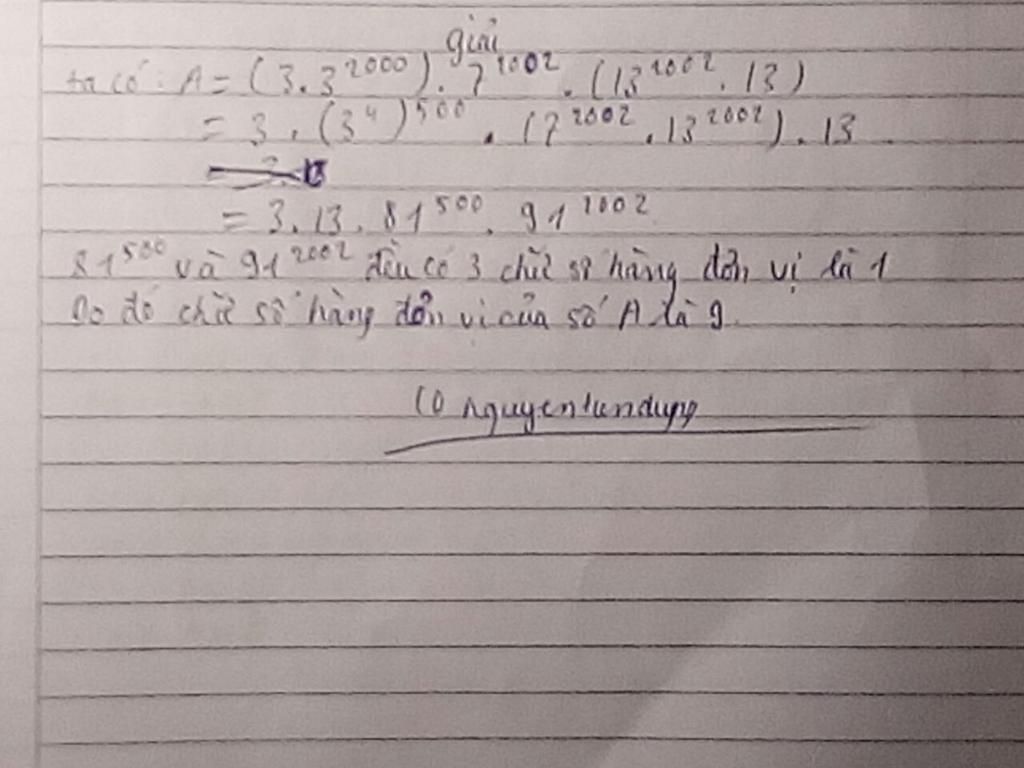 giải
ta có : A = (3.3²⁰⁰⁰).7²⁰⁰².(13²⁰⁰².13)
= 3.(3⁴)⁵⁰⁰.(7²⁰⁰².13²⁰⁰²).13
= 3.13.81⁵⁰⁰.91²⁰⁰²
81⁵⁰⁰ và 91²⁰⁰² đều có 3 chữ số hàng đơn vị là 1
Do đó chữ số hàng đơn vị của số A là 9.